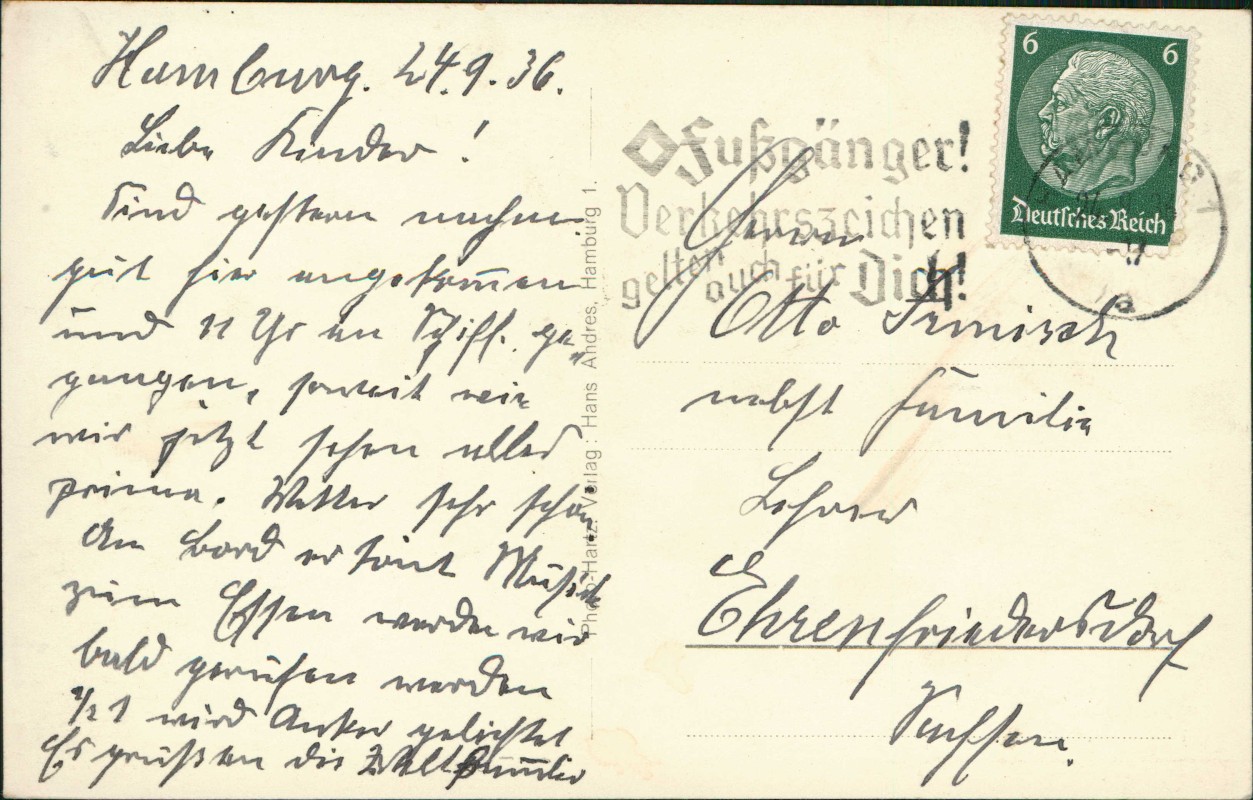 Hamburg. 24.9.36.
Liebe Kinder!
Sind gestern
gut hier angekommen
und 11 Uhr an Schiff. ge-
gangen, soweit wir
wir jetzt sehen alles
prima. Wetter sehr schön
An Bord ertönt Musik
zum Essen werden wir
bald gerufen werden
1/2 1 wird Anker gelichtet
Es grüßten die Weltbummler
Photo-Hartz. Verlag: Hans Andres, Hamburg 1.
6 6
Deutsches Reich
Fußgänger!
Verkehrszeichen
gelten auch für Dich!
Herrn
Otto Irmisch
nebst Familie
Lehrer
Ehrenfriedersdorf
Sachsen.